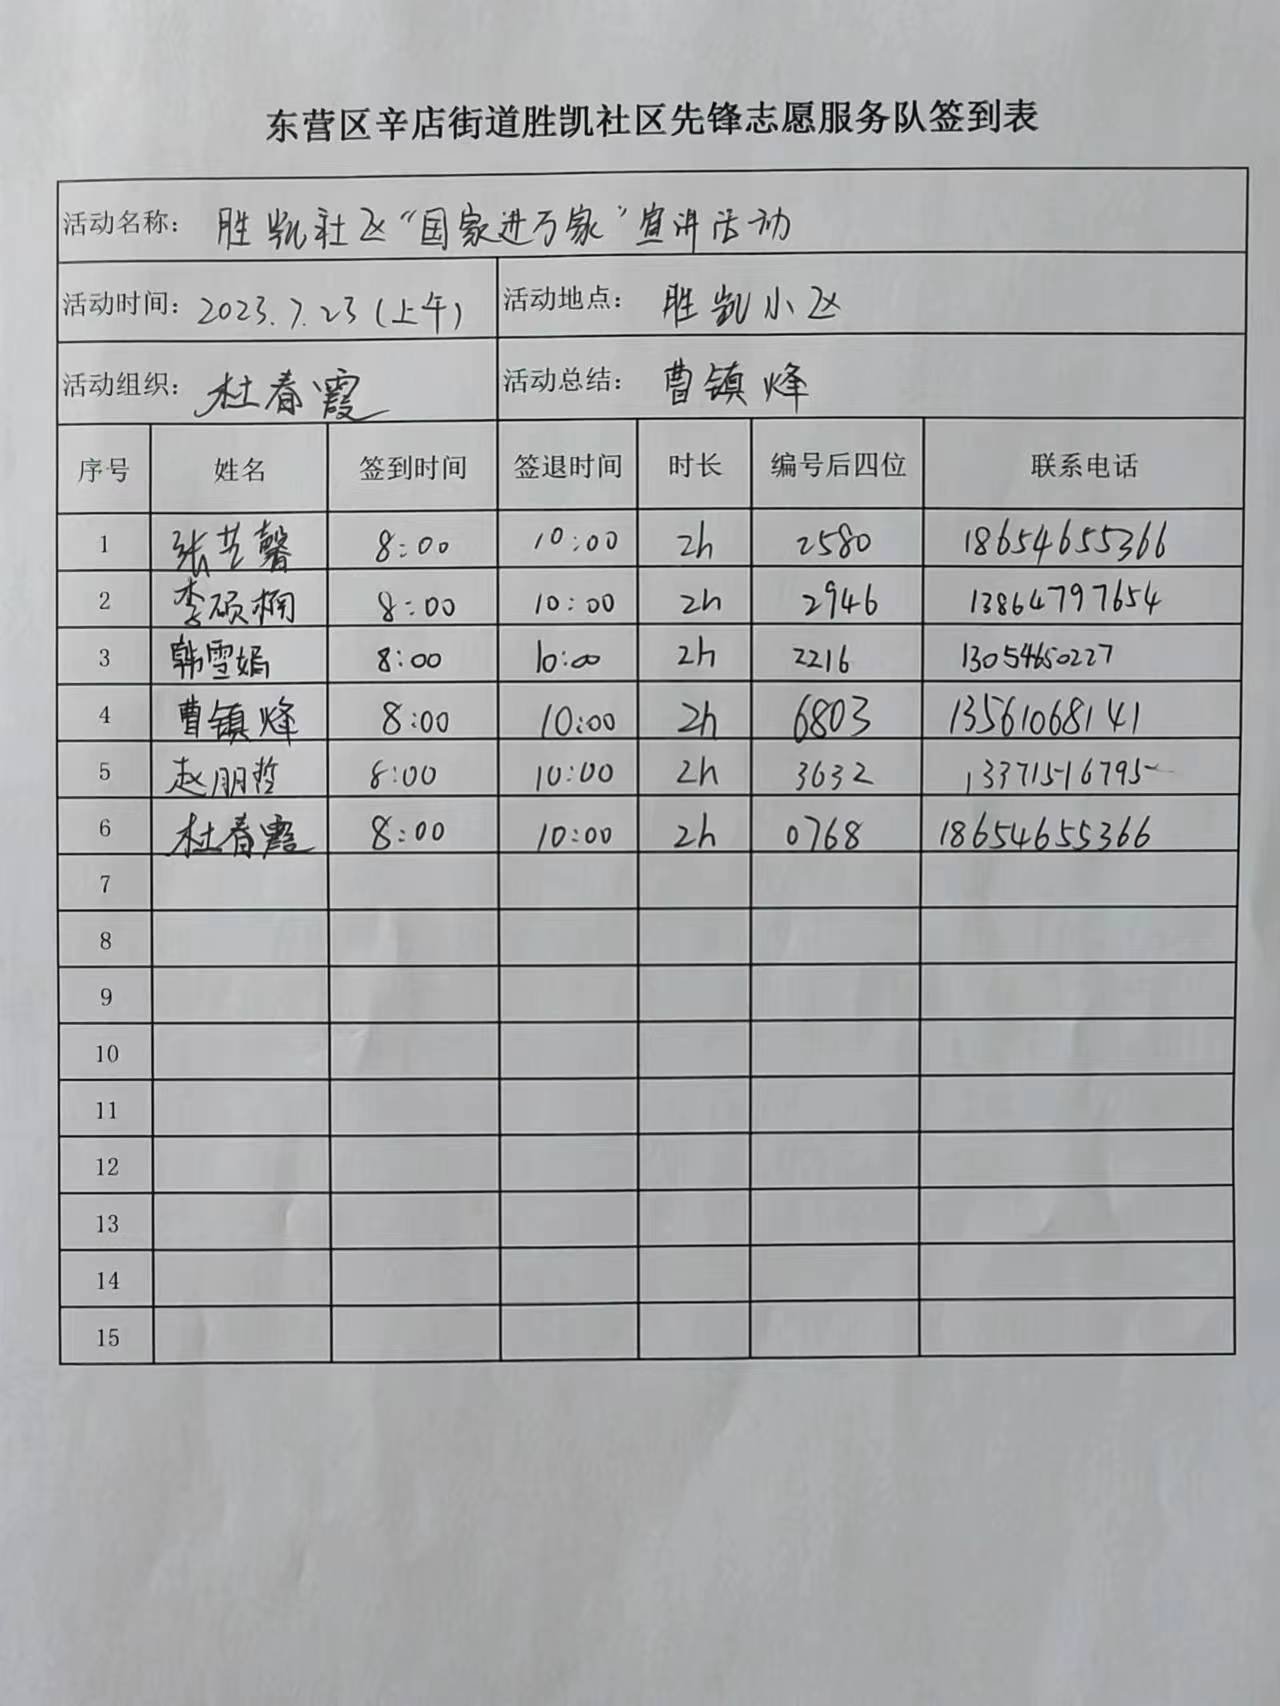 东营区辛店街道胜凯社区先锋志愿服务队签到表
活动名称： 胜凯社区“国家进万家”宣讲活动
活动时间： 2023.7.23(上午) 活动地点： 胜凯小区
活动组织： 杜春霞 活动总结： 曹镇烽
序号 姓名 签到时间 签退时间 时长 编号后四位 联系电话
1 张艺馨 8:00 10:00 2h 2580 18654655366
2 李硕桐 8:00 10:00 2h 2946 13864797654
3 韩雪嫣 8:00 10:00 2h 2216 13054650227
4 曹镇烽 8:00 10:00 2h 6803 13561068141
5 赵朋哲 8:00 10:00 2h 3632 13371516795
6 杜春霞 8:00 10:00 2h 0768 18654655366
7
8
9
10
11
12
13
14
15